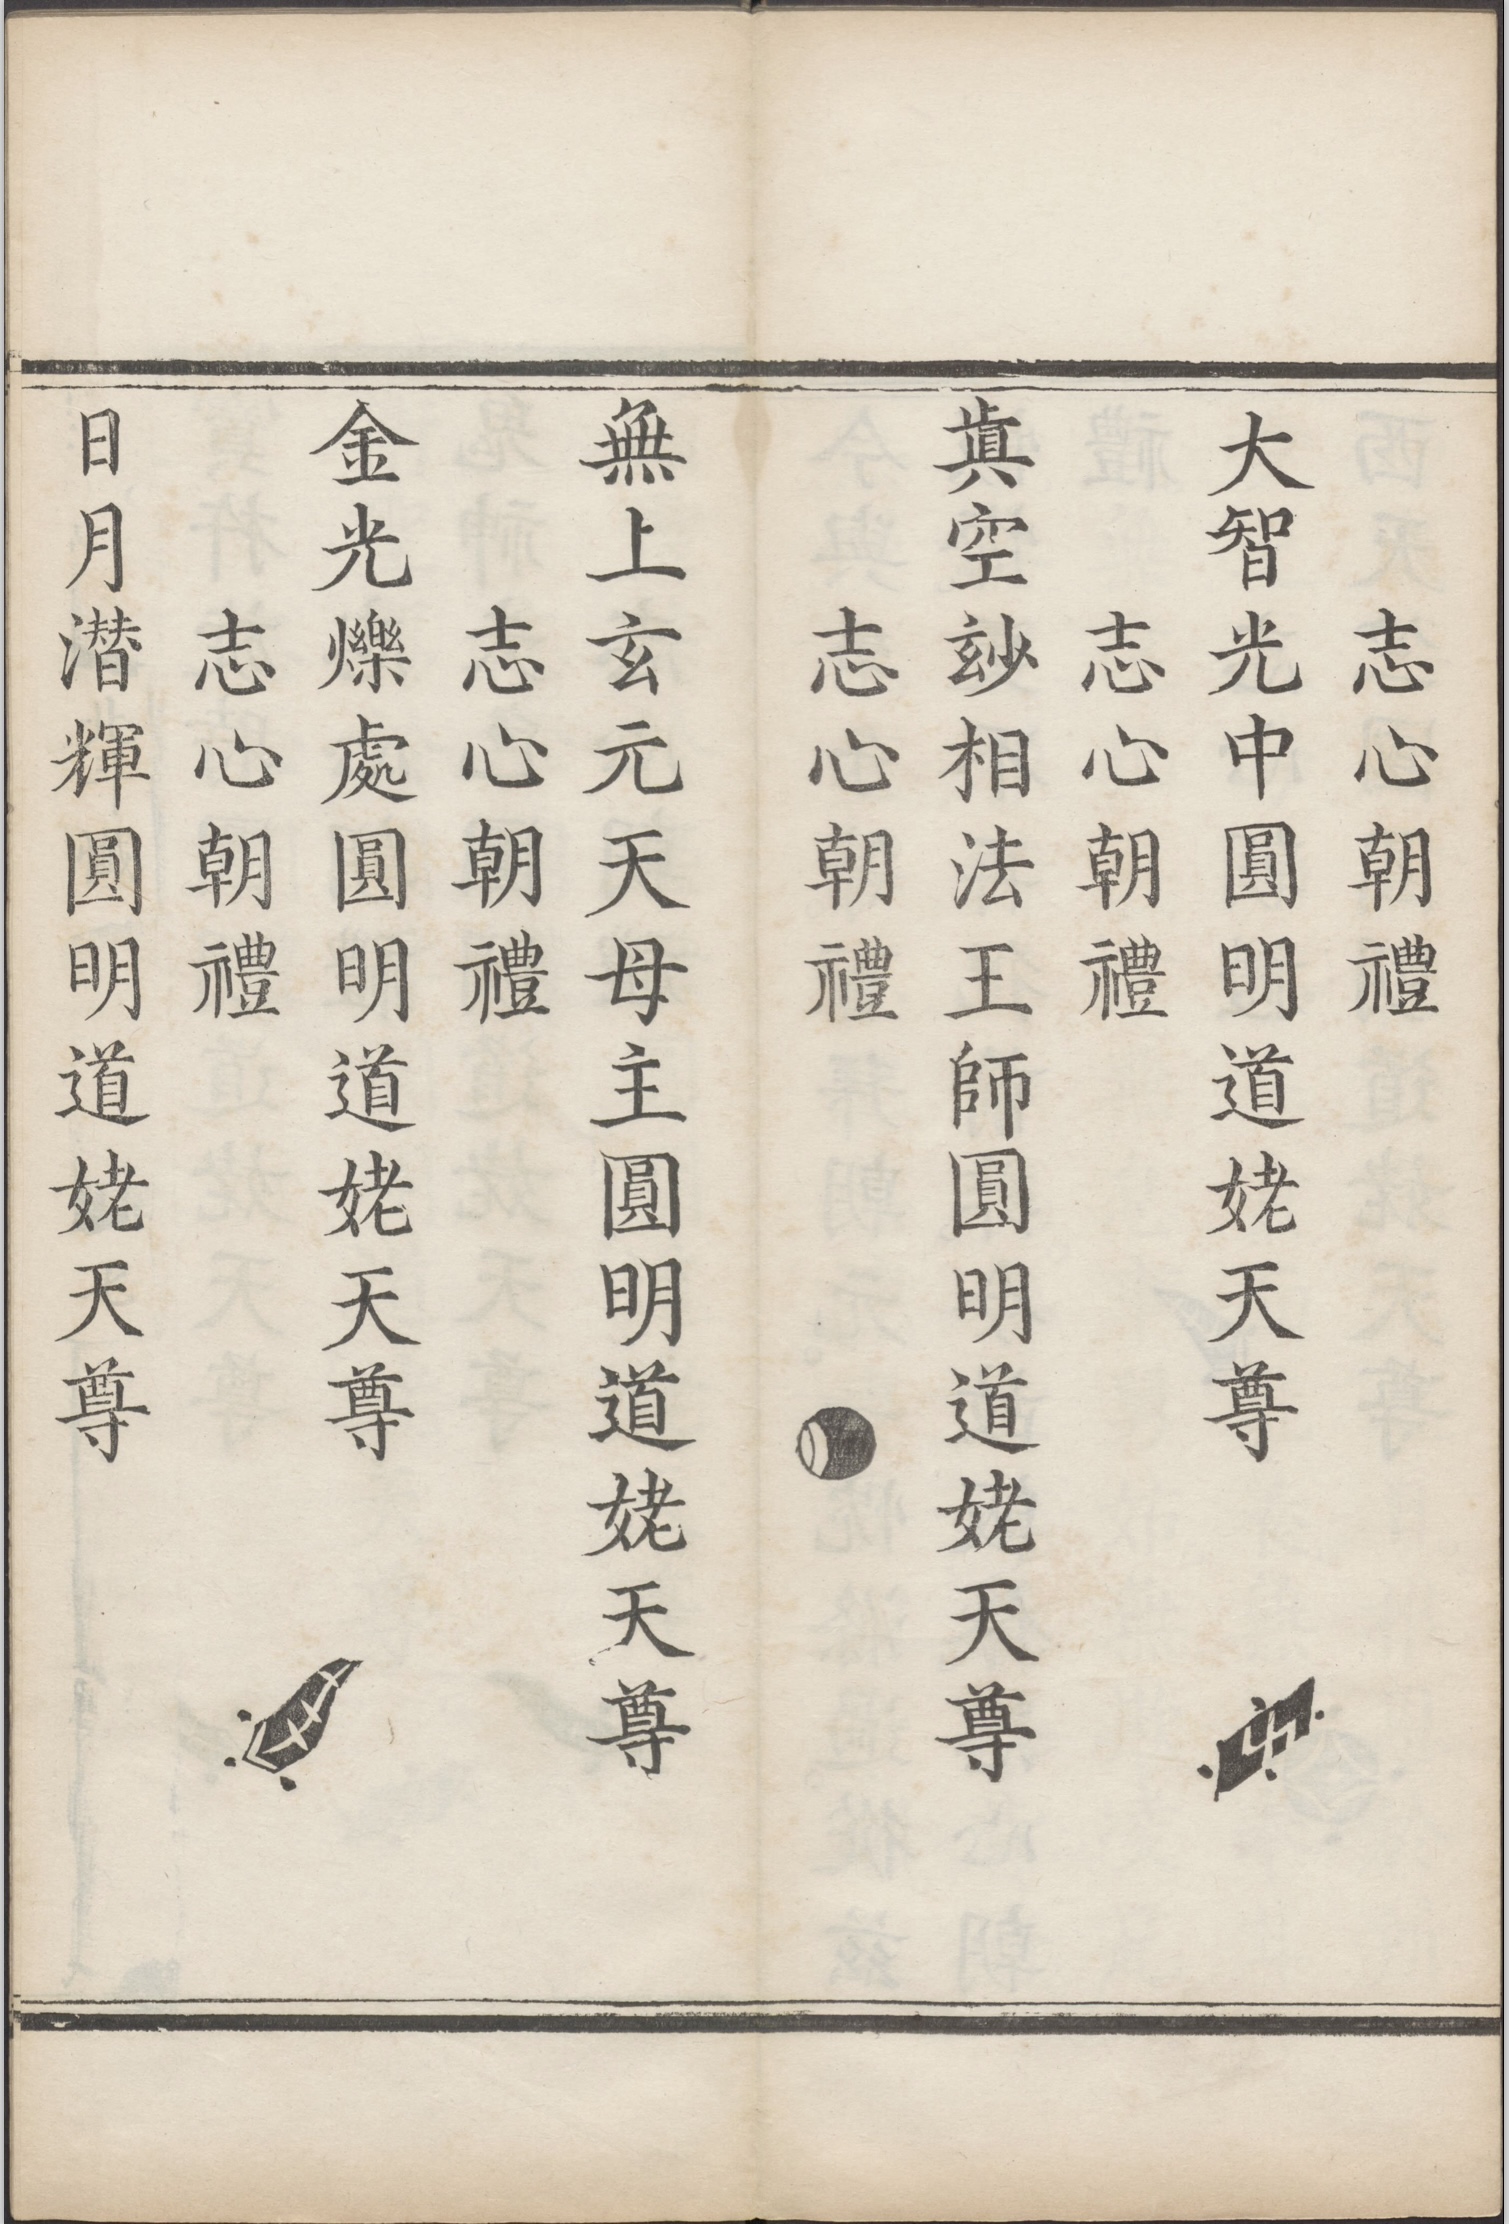 志心朝禮
大智光中圓明道姥天尊
志心朝禮
眞空玅相法王師圓明道姥天尊
志心朝禮
無上玄元天母主圓明道姥天尊
志心朝禮
金光爍處圓明道姥天尊
志心朝禮
日月潜輝圓明道姥天尊